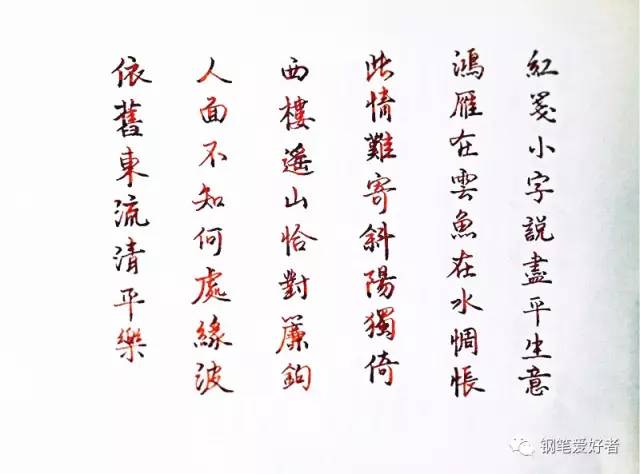 紅箋小字說盡平生意
鴻雁在雲魚在水惆悵
此情難寄斜陽獨倚
西樓遙山恰對簾鉤
人面不知何處緣波
依舊東流清平樂
钢笔爱好者